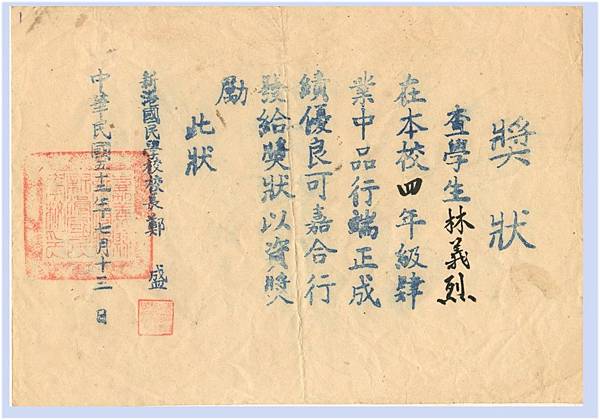 獎狀
查學生林義烈
在本校四年級肆
業中品行端正成
績優良可嘉合行
發給獎狀以資獎
勵
此狀
新港國民學校校長鄭 盛
中華民國五十二年七月十三日